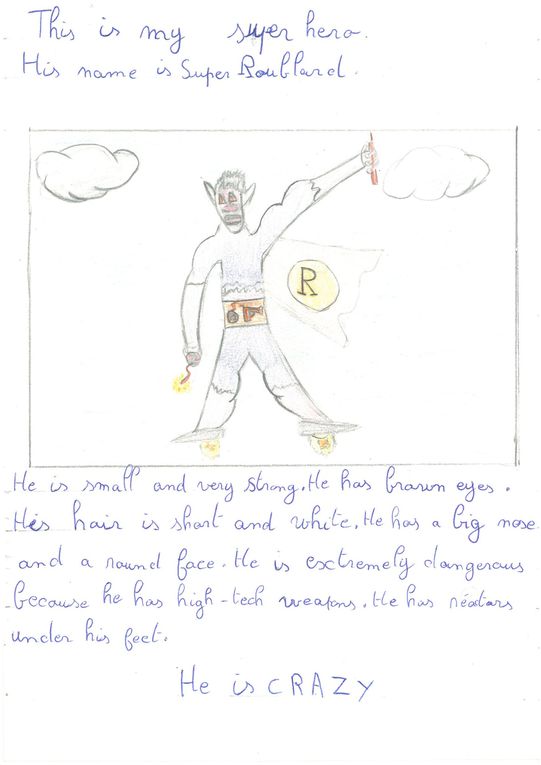 This is my super hero.
His name is Super Roublard.
R
He is small and very strong. He has brown eyes.
His hair is short and white. He has a big nose
and a round face. He is exctremely dangerous
because he has high-tech weapons. He has réators
under his feet.
He is CRAZY